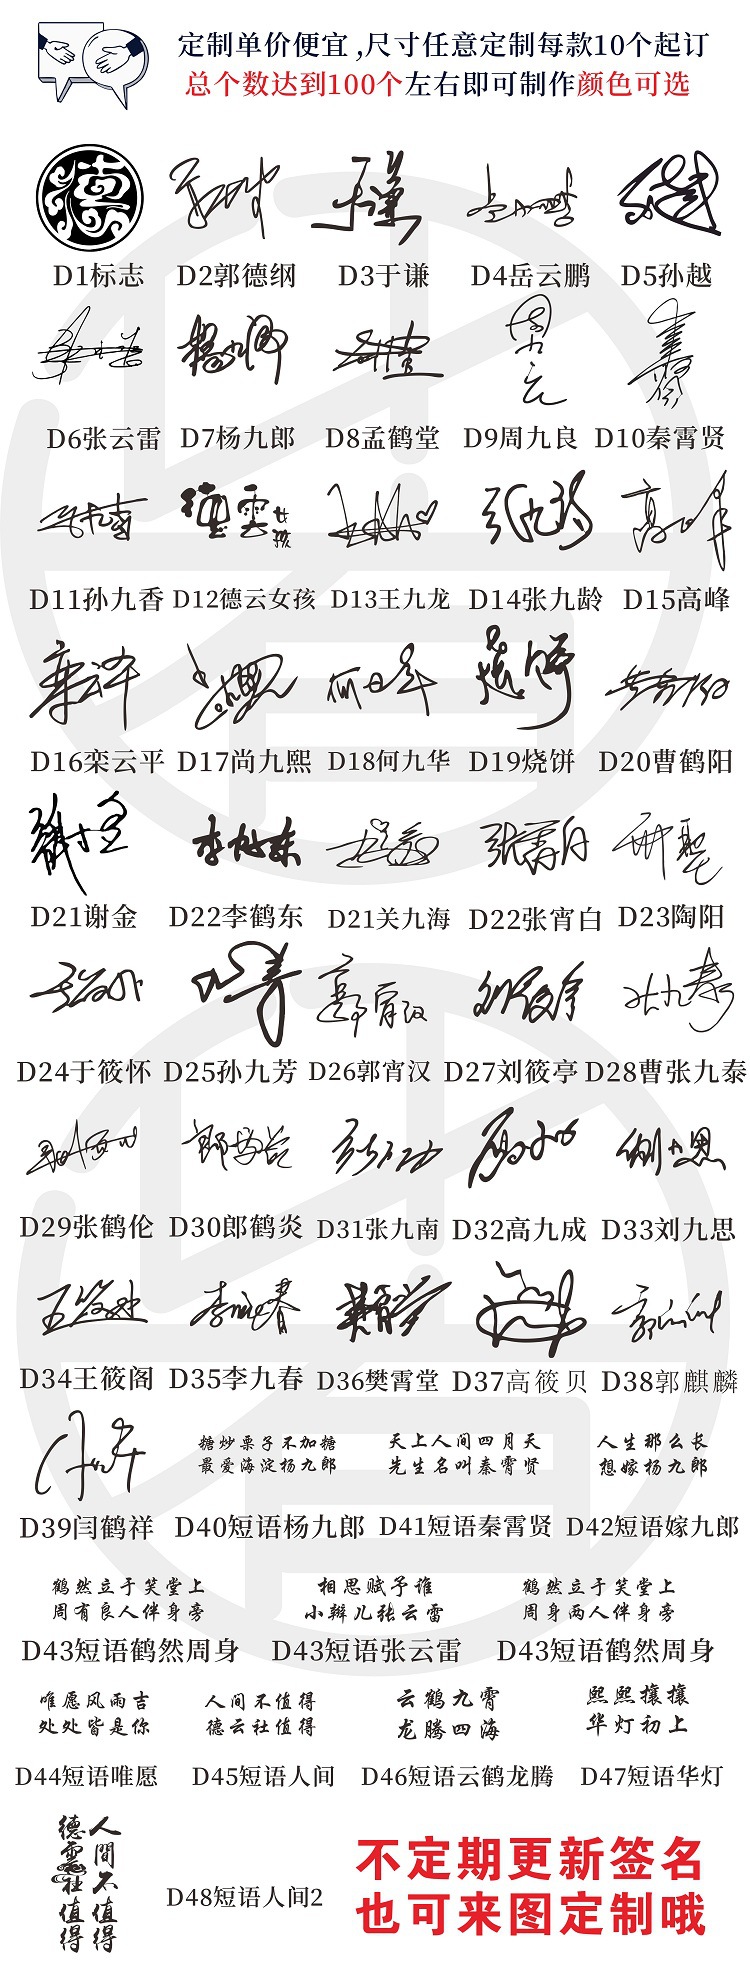 定制单价便宜,尺寸任意定制每款10个起订
总个数达到100个左右即可制作颜色可选
德
D1标志 D2郭德纲 D3于谦 D4岳云鹏 D5孙越
D6张云雷 D7杨九郎 D8孟鹤堂 D9周九良 D10秦霄贤
德雲女孩
D11孙九香 D12德云女孩 D13王九龙 D14张九龄 D15高峰
D16栾云平 D17尚九熙 D18何九华 D19烧饼 D20曹鹤阳
D21谢金 D22李鹤东 D21关九海 D22张宵白 D23陶阳
D24于筱怀 D25孙九芳 D26郭宵汉 D27刘筱亭 D28曹张九泰
D29张鹤伦 D30郎鹤炎 D31张九南 D32高九成 D33刘九思
D34王筱阁 D35李九春 D36樊霄堂 D37高筱贝 D38郭麒麟
糖炒栗子不加糖 天上人间四月天 人生那么长
最爱海淀杨九郎 先生名叫秦霄贤 想嫁杨九郎
D39闫鹤祥 D40短语杨九郎 D41短语秦霄贤 D42短语嫁九郎
鹤然立于笑堂上 相思赋予谁 鹤然立于笑堂上
周有良人伴身旁 小辫儿张云雷 周身两人伴身旁
D43短语鹤然周身 D43短语张云雷 D43短语鹤然周身
唯愿风雨吉 人间不值得 云鹤九霄 熙熙攘攘
处处皆是你 德云社值得 龙腾四海 华灯初上
D44短语唯愿 D45短语人间 D46短语云鹤龙腾 D47短语华灯
人間不值得
德雲社值得
D48短语人间2
不定期更新签名
也可来图定制哦